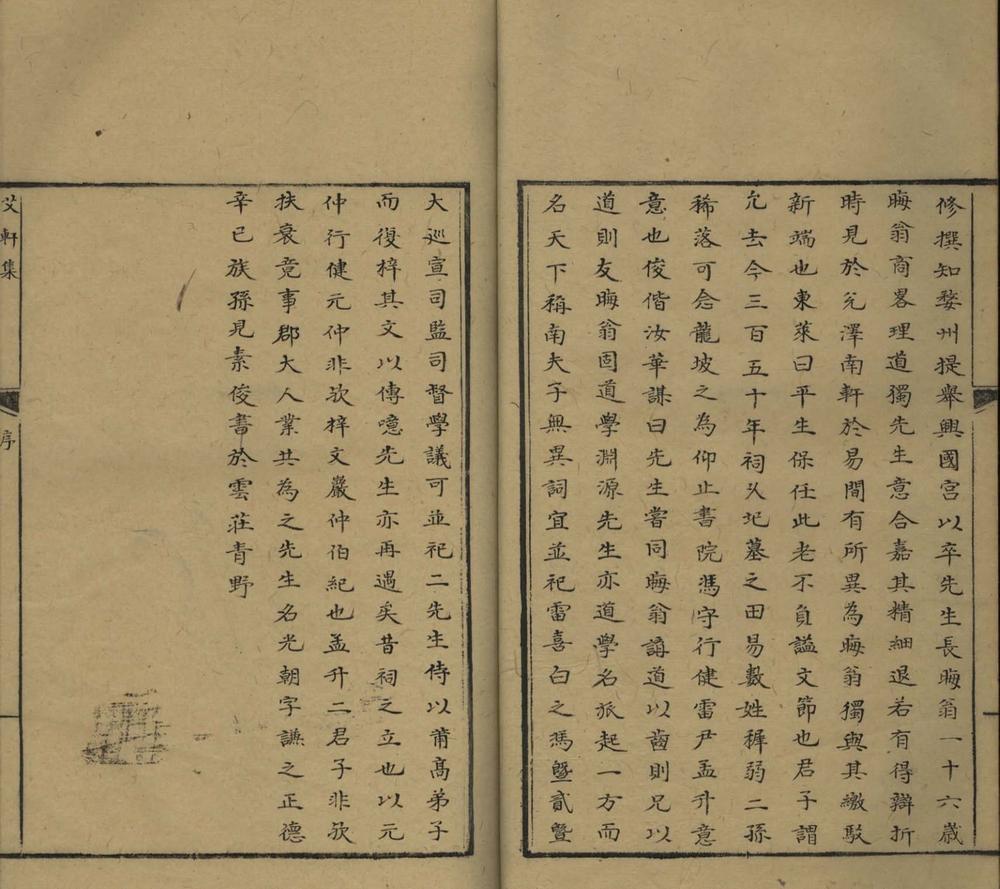 修撰知婺州提舉興國宫以卒先生長晦翁一十六歳
晦翁商畧理道獨先生意合嘉其精細退若有得辯折
時見於兊澤南軒於易間有所異為晦翁獨與其繳駁
新端也東萊曰平生保任此老不負諡文節也君子謂
允去今三百五十年祠乆圮墓之田易數姓穉弱二孫
稀落可念龍坡之為仰止書院馮守行健雷尹孟升意
意也俊偕汝華謀曰先生嘗同晦翁講道以齒則兄以
道則友晦翁固道學淵源先生亦道學名派起一方而
名天下稱南夫子無異詞宜並祀雷喜白之馮曁貳曁
大廵宣司監司督學議可並祀二先生侍以莆髙弟子
而復梓其文以傳噫先生亦再遇矣昔祠之立也以元
仲行健元仲非欤梓文巖仲伯紀也孟升二君子非欤
扶衰竟事郡大人業共為之先生名光朝字謙之正德
辛巳族孫見素俊書於雲莊青野
艾軒集
序